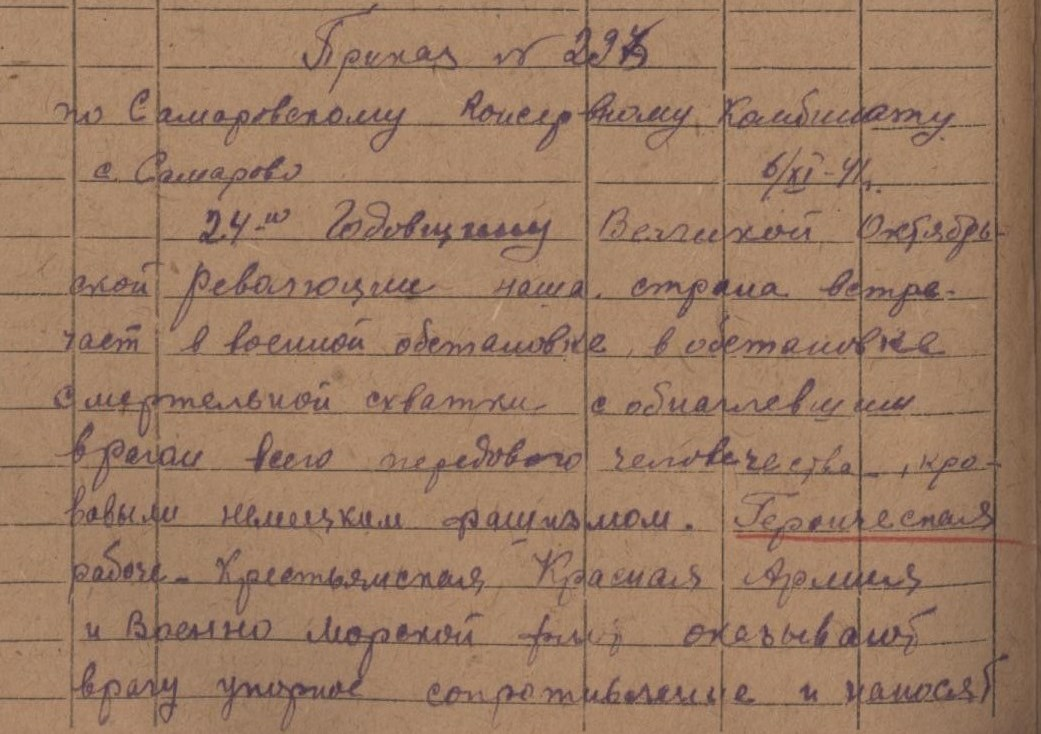 Приказ №
по Самаровскому Консервному Комбинату
с. Самарово 6/XI-41г.
24-ю Годовщину Великой Октябрь-
ской Революции наша страна встре-
чает в военной обстановке, в обстановке
смертельной схватки с обнаглевшим
врагом всего передового человечества, кро-
вавым немецким фашизмом. Героическая
рабоче-Крестьянская Красная Армия
и Военно Морской флот оказывают
врагу упорное сопротивление и наносят